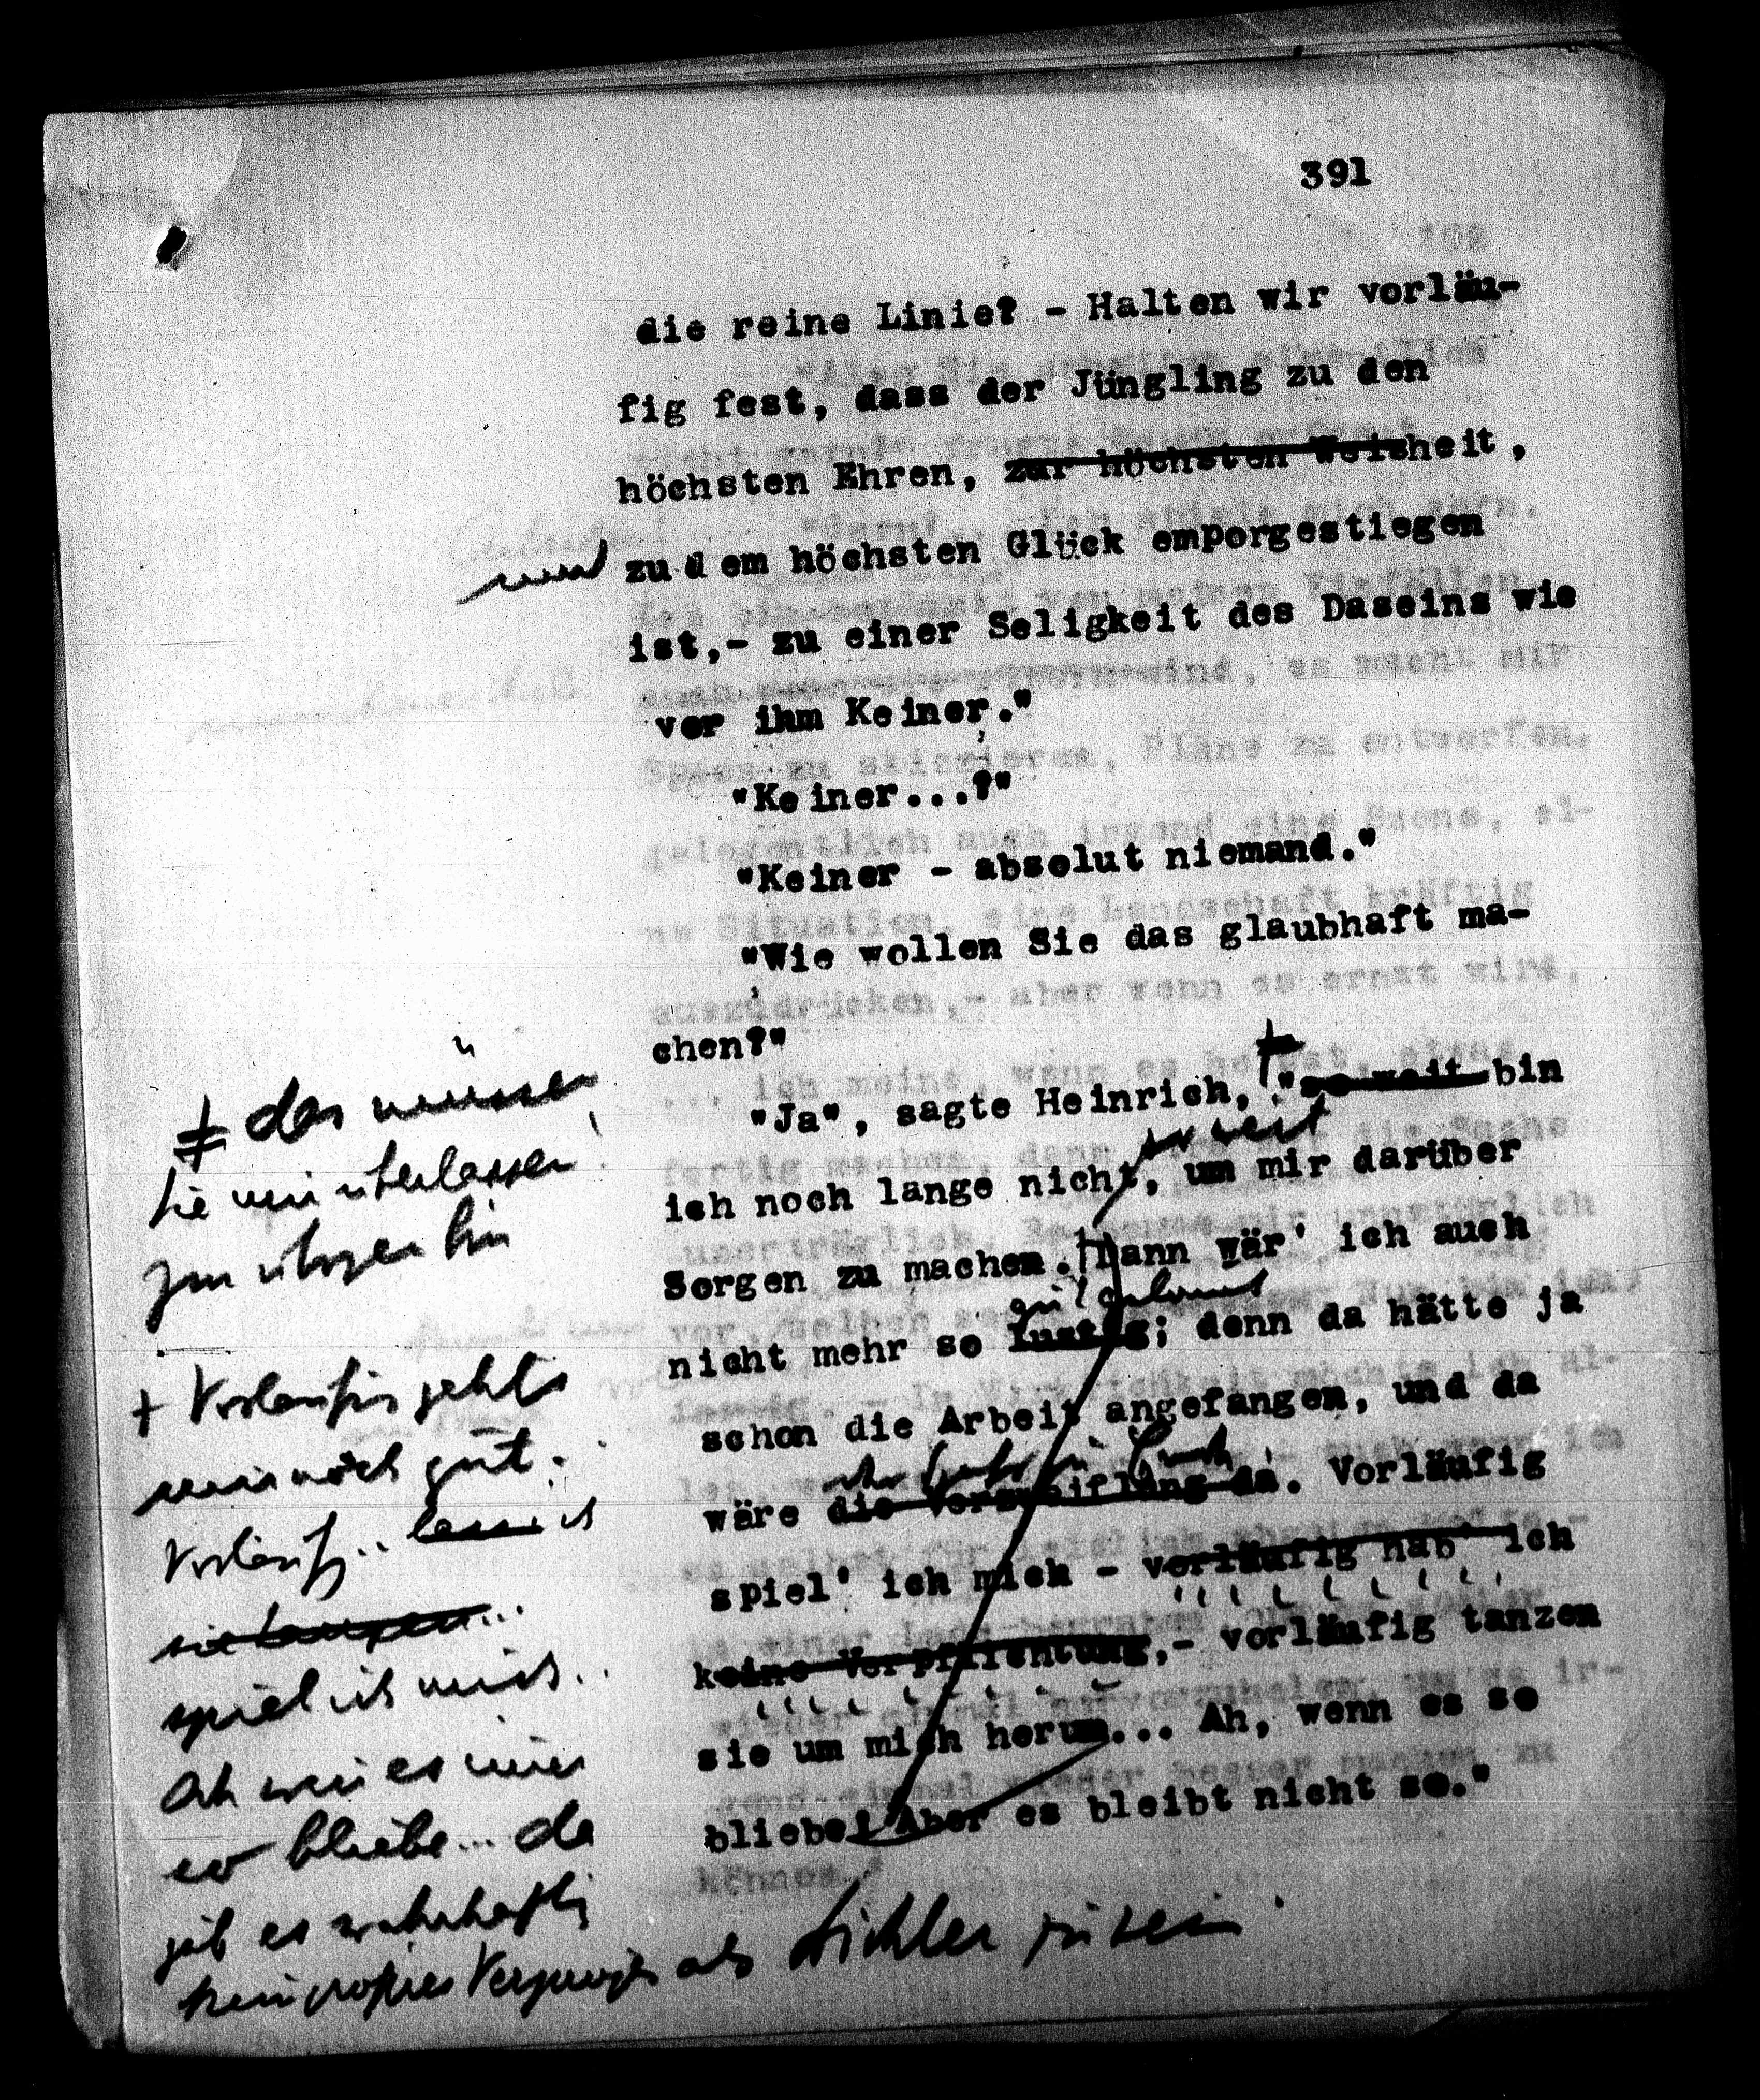 391
die reine Linie? - Halten wir vorläu-
fig fest, dass der Jüngling zu den
höchsten Ehren, zur höchsten Weisheit,
und zu dem höchsten Glück emporgestiegen
ist,- zu einer Seligkeit des Daseins wie
vor ihm Keiner."
"Keiner...?"
"Keiner - absolut niemand."
"Wie wollen Sie das glaubhaft ma-
chen?"
"Ja", sagte Heinrich, "so weit bin
so weit
ich noch lange nicht, um mir darüber
Sorgen zu machen. Dann wär' ich auch
gut gelaunt
nicht mehr so lustig; denn da hätte ja
schon die Arbeit angefangen, und da
wäre die Verzweiflung da. Vorläufig
spiel' ich mich - vorläufig hab' ich
keine Verpflichtung,- vorläufig tanzen
sie um mich herum... Ah, wenn es so
bliebe! Aber es bleibt nicht so."
≠ das müssen
Sie mir überlassen!
Im übrigen bin
+ Vorläufig geht's
mir noch gut.
Vorläufig.. lass ich
sie tanzen...
spiel ich mich..
Ah wenn es immer
so bliebe... da
gäb es wahrhaftig
kein größres Vergnügen als Dichter zu sein